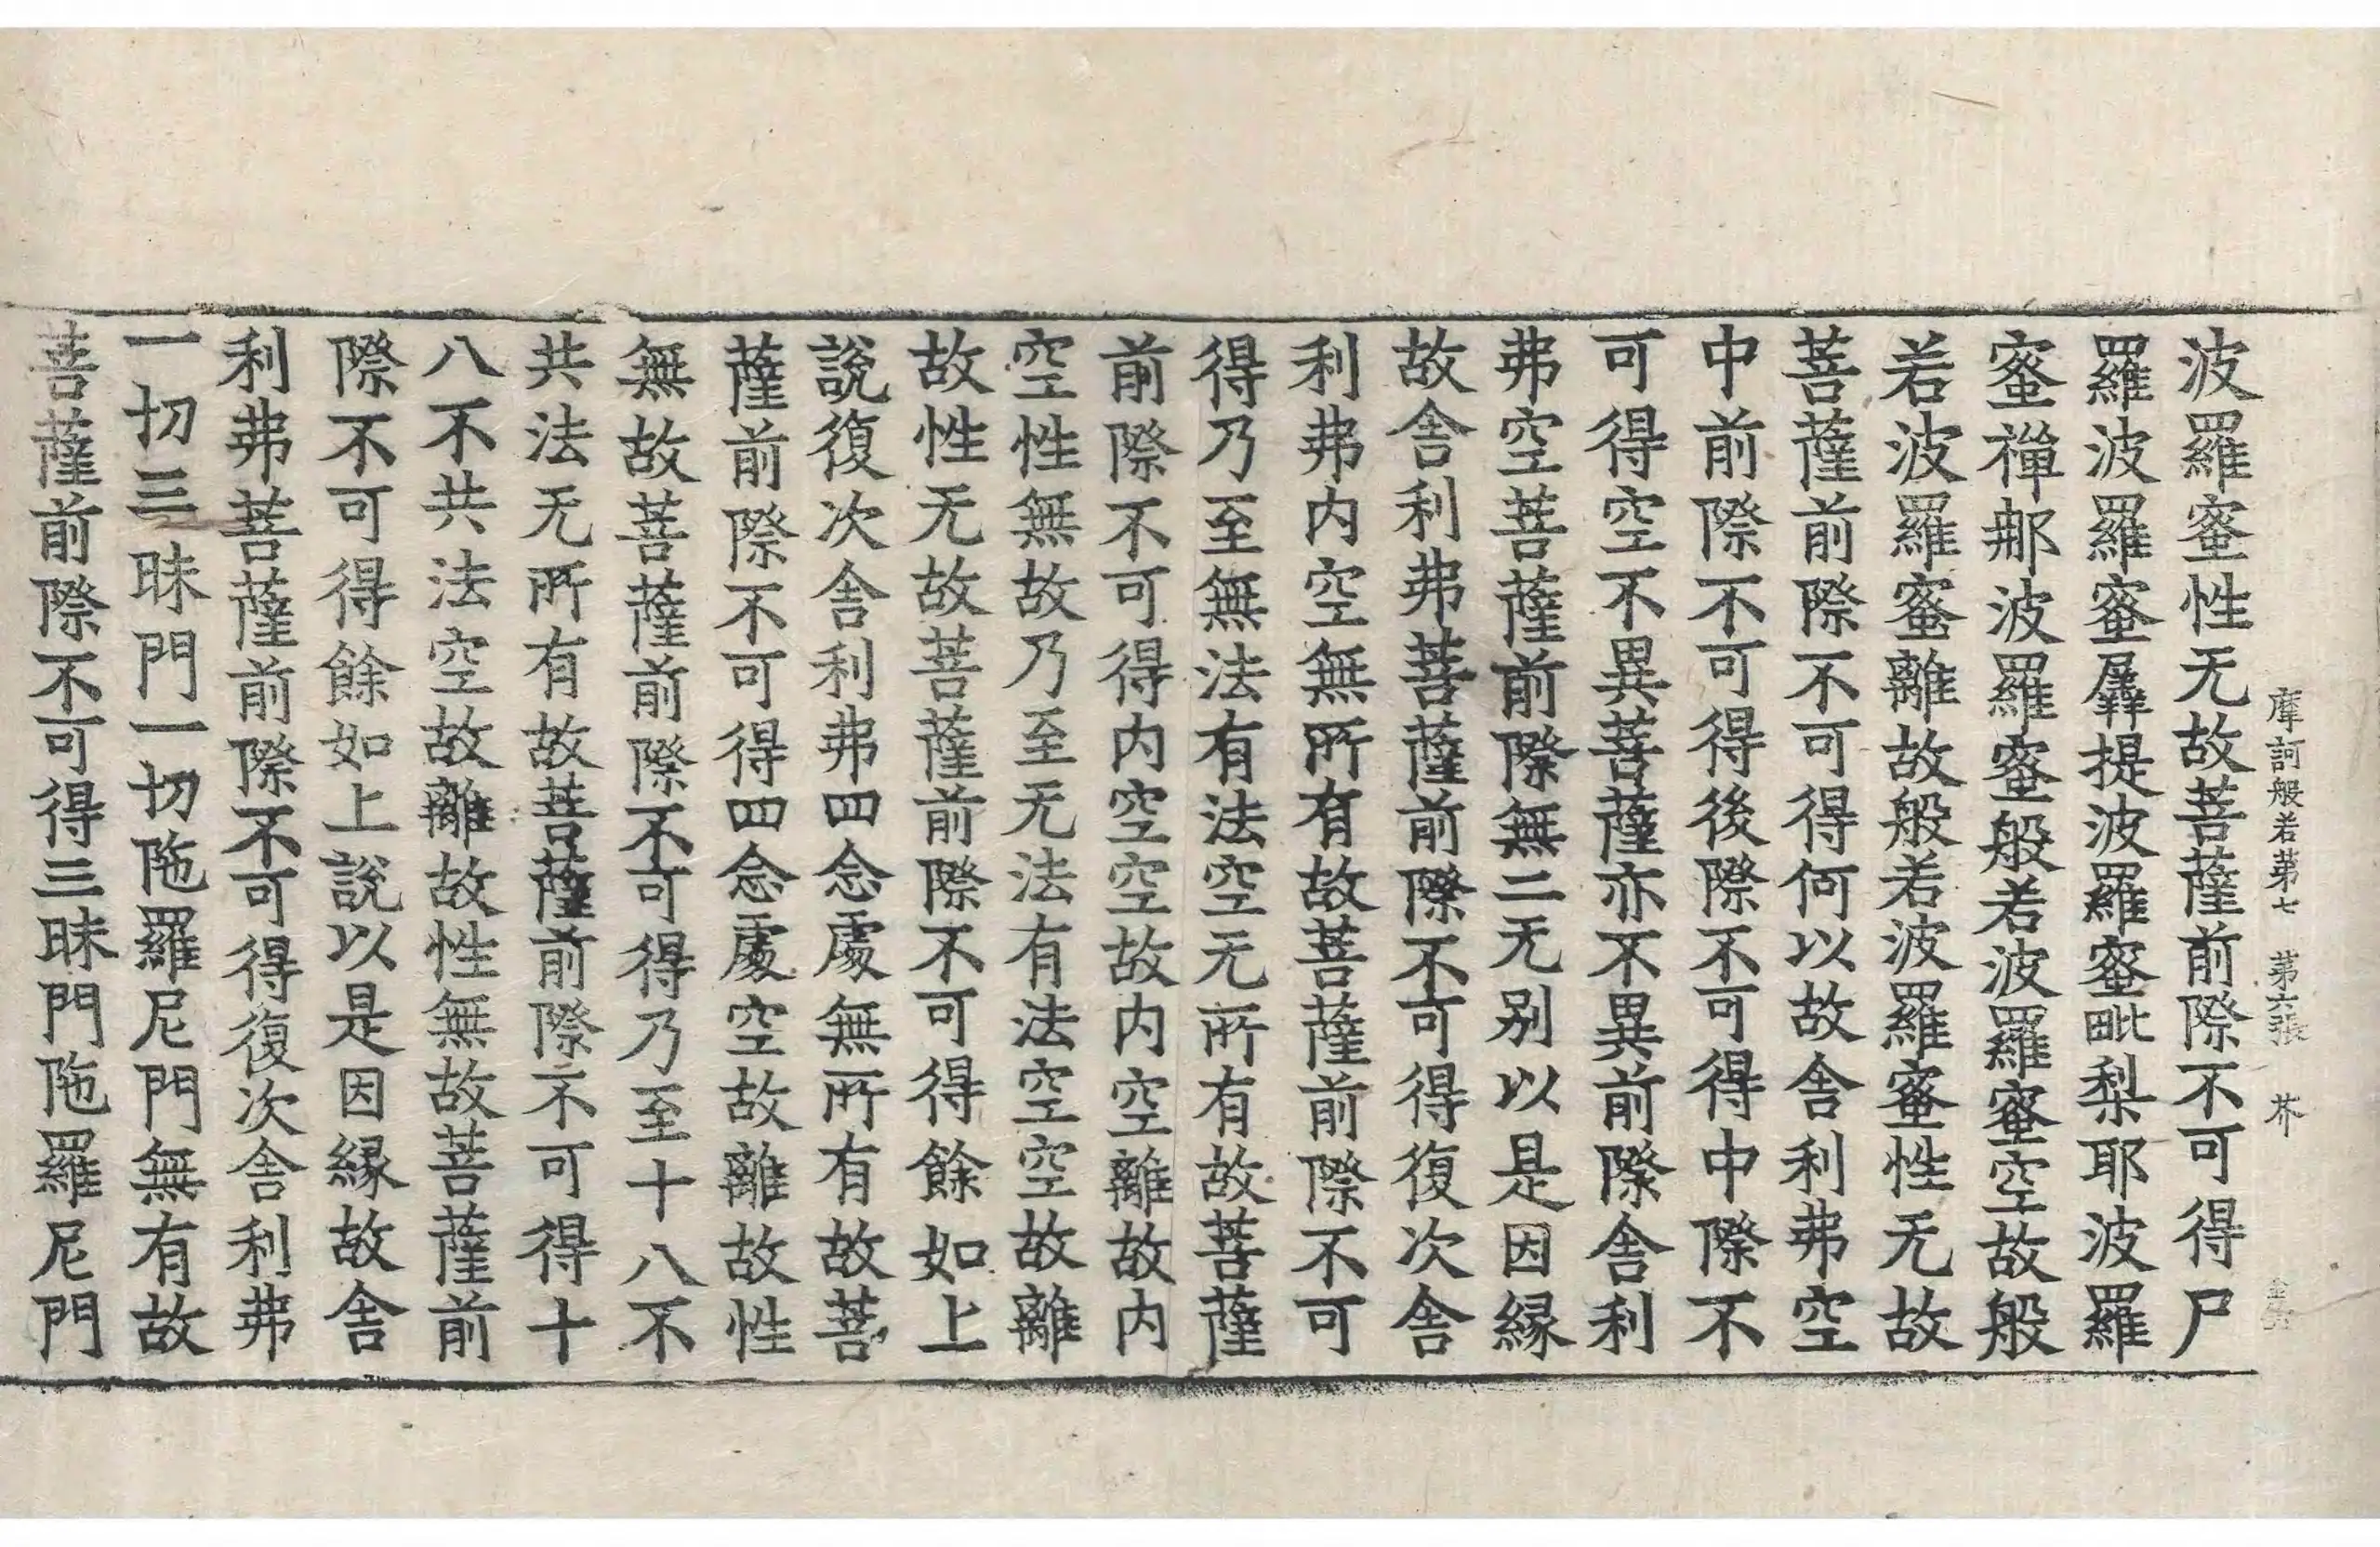 摩訶般若第七 第六張 芥
波羅蜜性无故菩薩前際不可得尸
羅波羅蜜羼提波羅蜜毗梨耶波羅
蜜禪那波羅蜜般若波羅蜜空故般
若波羅蜜離故般若波羅蜜性无故
菩薩前際不可得何以故舍利弗空
中前際不可得後際不可得中際不
可得空不異菩薩亦不異前際舍利
弗空菩薩前際無二无別以是因緣
故舍利弗菩薩前際不可得復次舍
利弗內空無所有故菩薩前際不可
得乃至無法有法空无所有故菩薩
前際不可得內空空故內空離故內
空性無故乃至无法有法空空故離
故性无故菩薩前際不可得餘如上
說復次舍利弗四念處無所有故菩
薩前際不可得四念處空故離故性
無故菩薩前際不可得乃至十八不
共法无所有故菩薩前際不可得十
八不共法空故離故性無故菩薩前
際不可得餘如上說以是因緣故舍
利弗菩薩前際不可得復次舍利弗
一切三昧門一切陁羅尼門無有故
菩薩前際不可得三昧門陁羅尼門